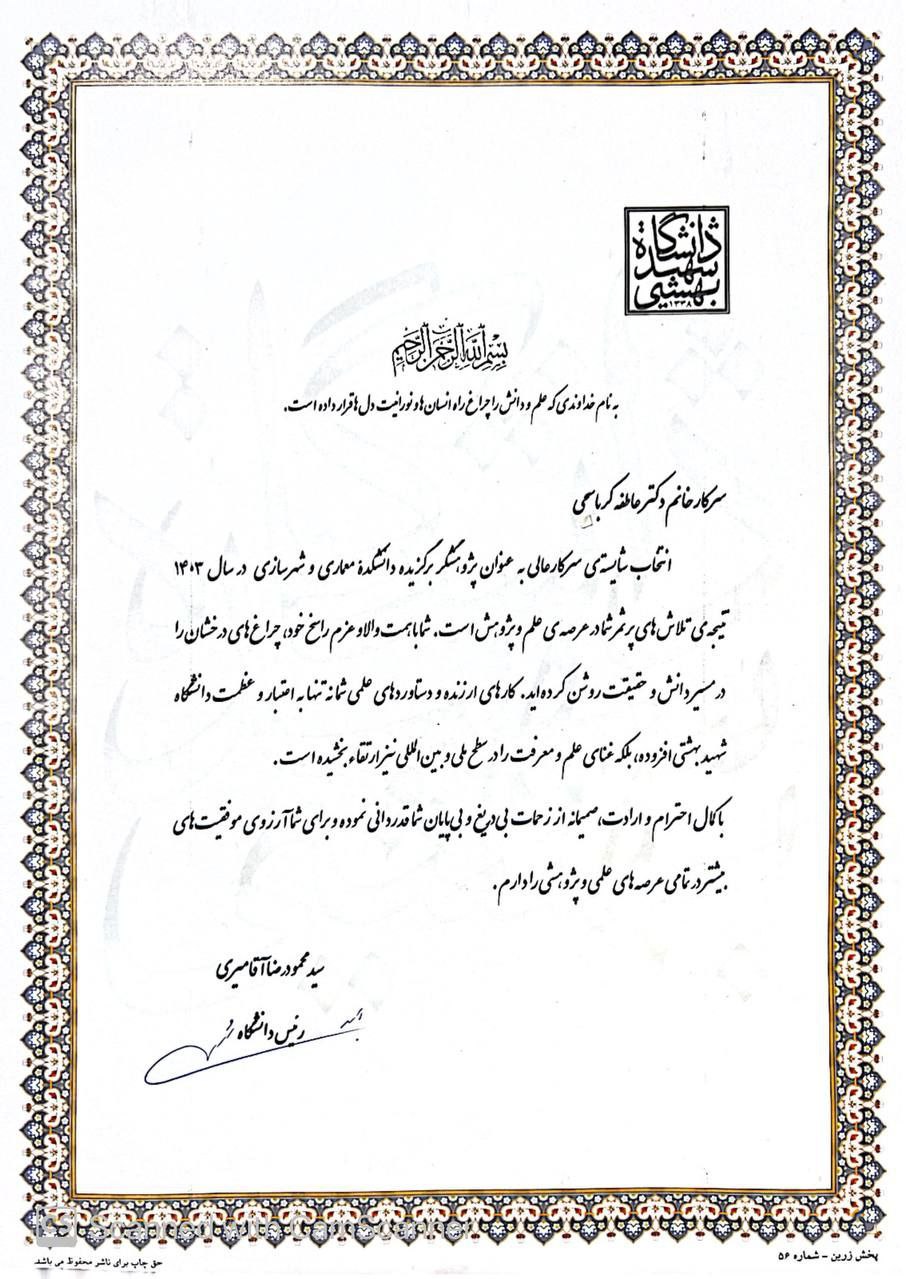 دانشگاه
شهید
بهشتی
۱۳۳۸
بسم الله الرحمن الرحیم
به نام خداوندی که علم و دانش را چراغ راه انسان ها و نورانیت دل ها قرار داده است.
سرکار خانم دکتر عاطفه کرباسی
انتخاب شایسته‌ی سرکارعالی به عنوان پژوهشگر برگزیده دانشکدۀ معماری و شهرسازی در سال ۱۴۰۳
نتیجه‌ی تلاش های پرثمر شما در عرصه‌ی علم و پژوهش است. شما با همت والا و عزم راسخ خود، چراغ های درخشان را
در مسیر دانش و حقیقت روشن کرده‌اید. کارهای ارزنده و دستاوردهای علمی شما نه تنها به اعتبار و عظمت دانشگاه
شهید بهشتی افزوده، بلکه غنای علم و معرفت را در سطح ملی و بین المللی نیز ارتقاء بخشیده است.
با کمال احترام و ارادت، صمیمانه از زحمات بی دریغ و بی پایان شما قدردانی نموده و برای شما آرزوی موفقیت های
بیشتر در تمامی عرصه های علمی و پژوهشی را دارم.
سید محمودرضا آقامیری
رئیس دانشگاه
CS Scanned with CamScanner
پخش زرین – شماره ۵۶
حق چاپ برای ناشر محفوظ می باشد